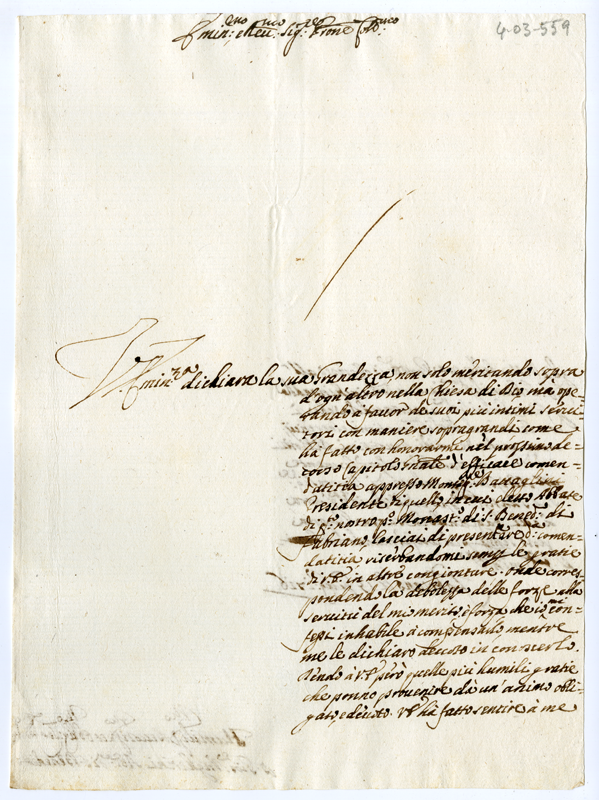 4-03-559
Emin:mo e Reu:mo Sig:r Prone Col:mo
V. Emin:za dichiara la sua Grandezza, non solo meritando sopra
d'ogn'altro nella Chiesa di Dio, mà ope=
rando à favor de suoi più intimi servi
tori con maniere sopragrandi come
hà fatto con honorarmi nel prossimo de=
corso Capitolo Gnãle d'efficace comen=
datitia appresso Monsig:
Presidente di quello, in cui eletto Abbate
di q:to nostro Monast:o di S. Bened:o di
Fabriano, lasciai di presentare d:a comen=
datitia, riserbandomi le gratie
di V.E. in altre congionture. Onde corris=
pondendo la debolezza delle forze alla
servitù del mio merito, è forza che io mi con=
fessi inhabile à compensarlo, mentre
me le dichiaro devoto in conoscerlo.
Rendo à V.E. però quelle più humili gratie
che ponno provenire dà un'animo obli=
gato, e devoto. V.E. hà fatto sentire à me